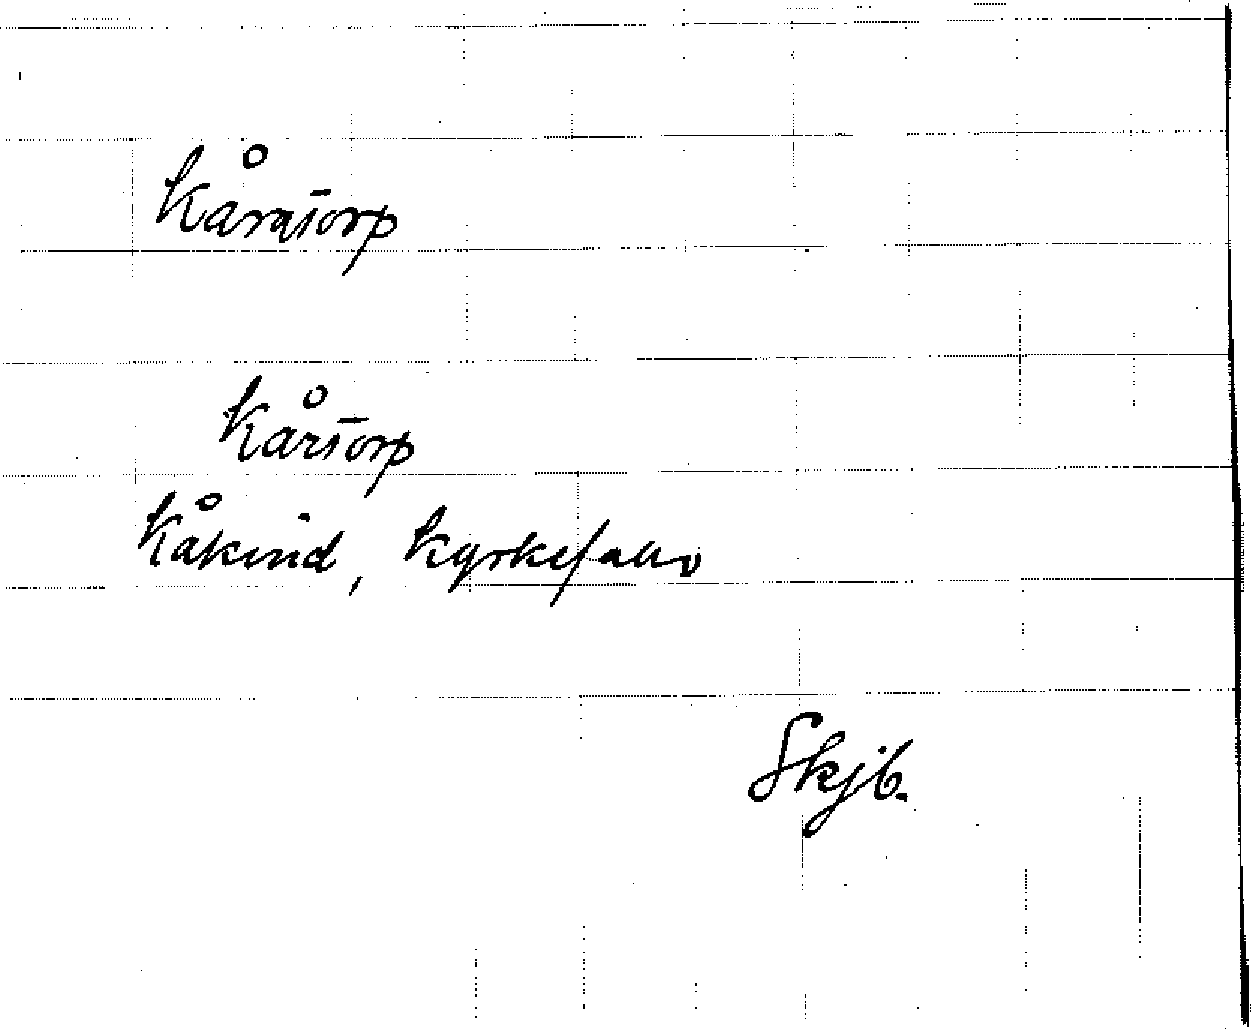 Kåratorp
Kårtorp
Kåkind, Kyrkefalla
Skjb.